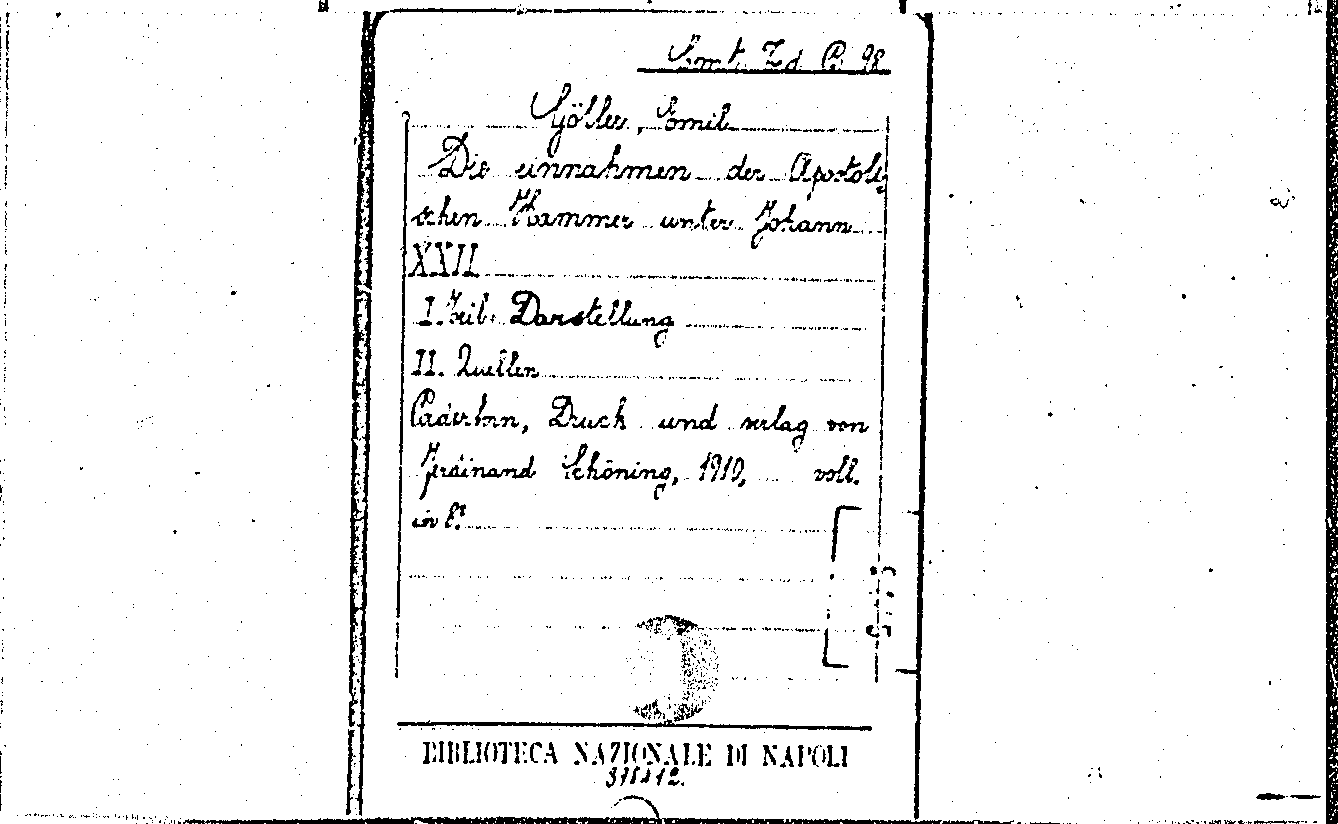 Cont. Zd B 98
Göller, Emil
Die einnahmen der Apostoli-
schen Kammer unter Johann
XXII
I. Teil. Darstellung
II. Quellen
Paderborn, Druck und verlag von
Ferdinand Schöning, 1910, voll.
in 8º
BIBLIOTECA NAZIONALE DI NAPOLI